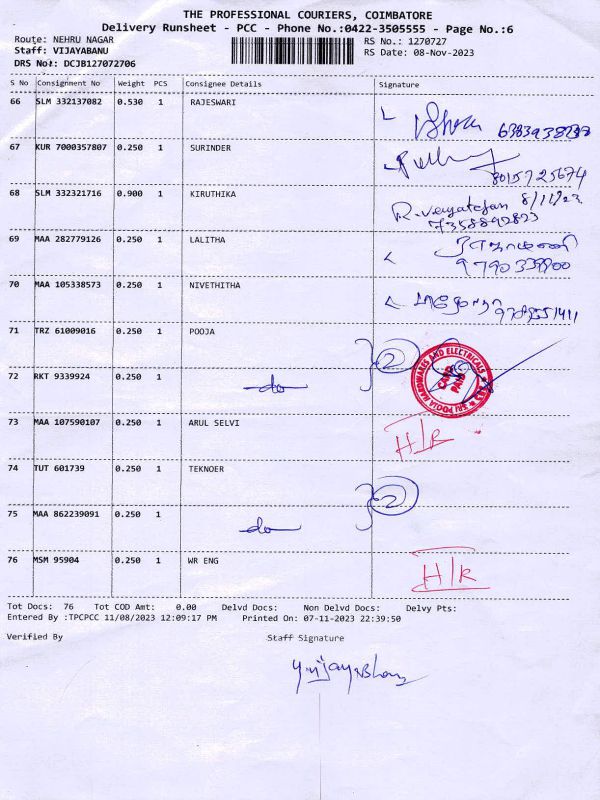 THE PROFESSIONAL COURIERS, COIMBATORE
Delivery Runsheet - PCC - Phone No.:0422-3505555 - Page No.:6
Route: NEHRU NAGAR RS No.: 1270727
Staff: VIJAYABANU RS Date: 08-Nov-2023
DRS No.: DCJB127072706
S No Consignment No Weight PCS Consignee Details Signature
66 SLM 332137082 0.530 1 RAJESWARI
67 KUR 7000357807 0.250 1 SURINDER
8015725674
68 SLM 332321716 0.900 1 KIRUTHIKA
8/11/23
7358892823
69 MAA 282779126 0.250 1 LALITHA
9790339900
70 NIVETHITHA MAA 105338573 0.250 1
9789551411
71 TRZ 61009016 0.250 1 POOJA
2
SRI POOJA HARDWARES AND ELECTRICALS
CASH PAID
72 RKT 9339924 0.250 1 do
73 MAA 107590107 0.250 1 ARUL SELVI H/R
74 TUT 601739 0.250 1 TEKNOER
2
75 MAA 862239091 0.250 1 do
76 MSM 95904 0.250 1 WR ENG H/R
Tot Docs: 76 Tot COD Amt: 0.00 Delvd Docs: Non Delvd Docs: Delvy Pts:
Entered By :TPCPCC 11/08/2023 12:09:17 PM Printed On: 07-11-2023 22:39:50
Verified By Staff Signature